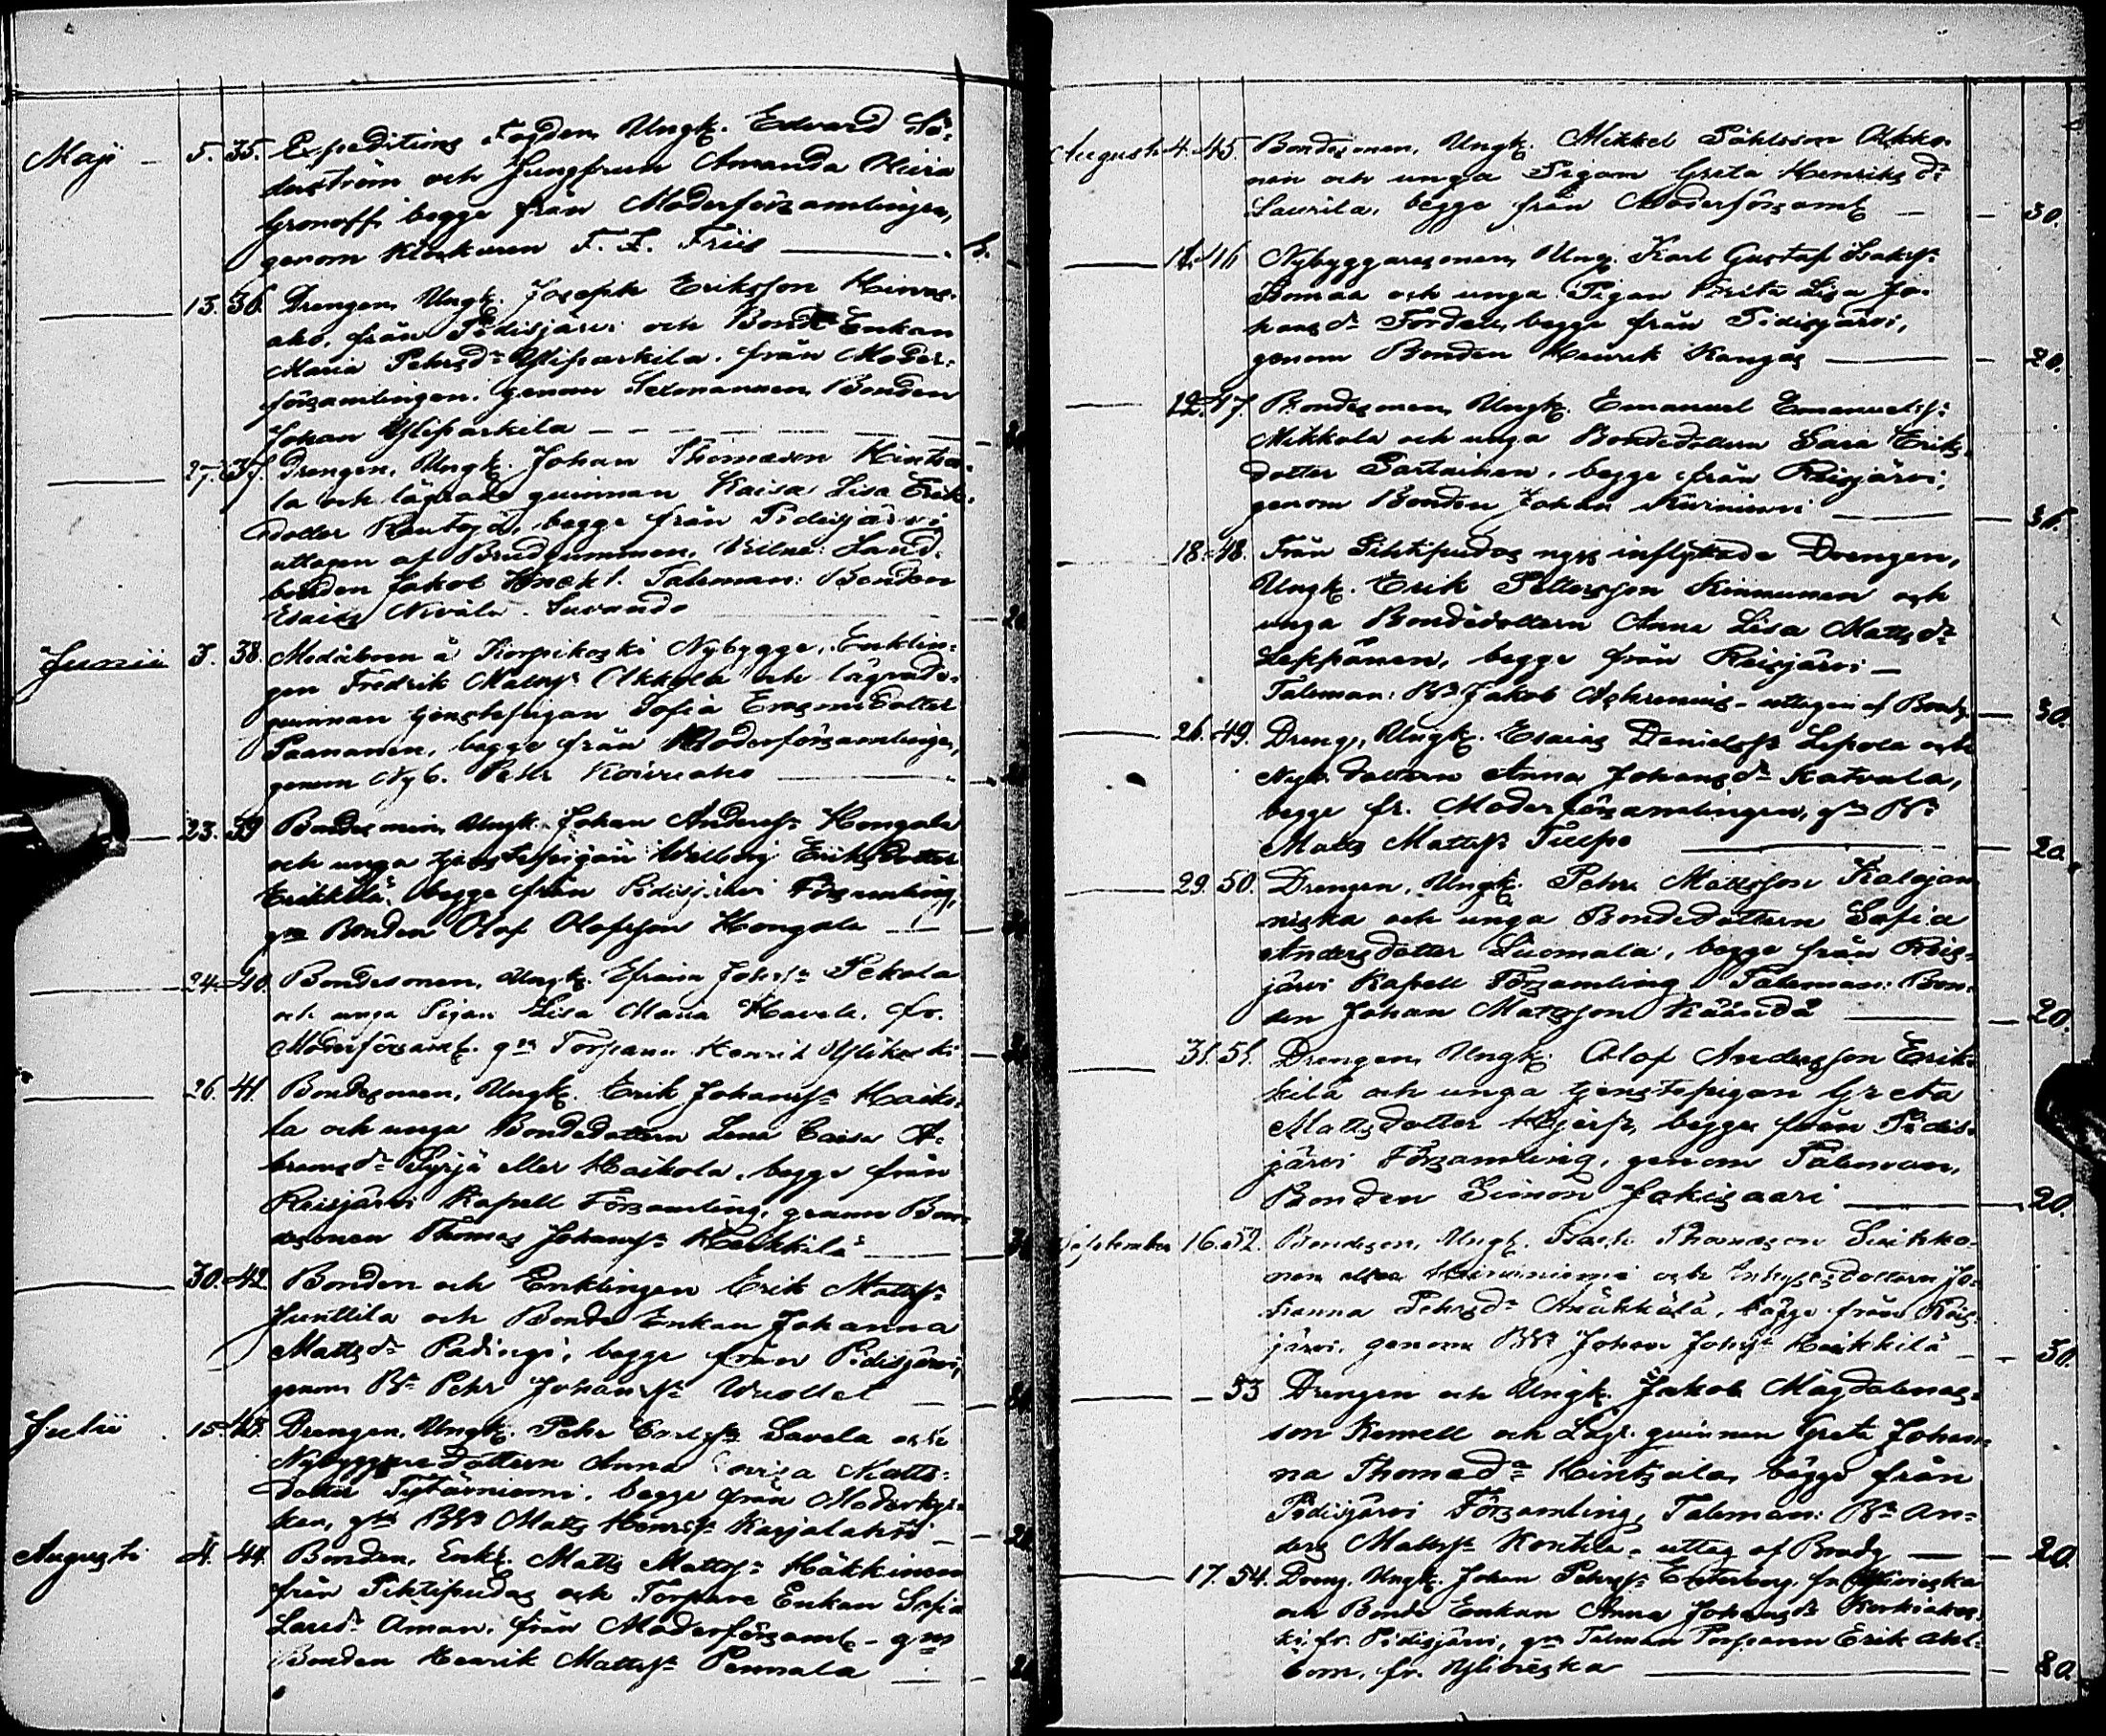 Maji 5. 35. Expeditions Fogden, Ungk. Edvard Sö-
derström och Jungfrun Amanda Maria
Gronoff, begge från Moderförsamlingen,
genom Klockaren F. F. Friis
13. 36. Drengen, Ungk. Joseph Eriksson Hirvas-
aho, från Pidisjärvi och Bonde Enkan
Maria Pehrsdr Yliparkila, från Moder-
församlingen. genom Sexmannen, Bonden
Johan Yliparkila
27. 37. Drengen, Ungk. Johan Thomasson Hintsa-
la och lägrade quinnan Kaisa Lisa Erik-
dotter Rautoja, begge från Pidisjärvi
uttagen af Brudgummen. Land-
bonden Jakob Taleman: Bonden
Esaias Nivala
Junii 3. 38. å Korpikoski Nybygge, Enklin-
gen Fredrik Mattss. Ukkola och lägrade
quinnan tjenstepigan Sofia Erasmidotter
Paananen, begge från Moderförsamlingen,
genom Nyb. Pehr Koivuaho
23. 39 Bondesonen, Ungk. Johan Anderss. Hongala
och unga tjenstepigan Walborg Eriksdotter
Erikkilä, begge från Pidisjärvi Församling,
gm Bonden Olof Olofsson Hongala
24. 40. Bondesonen, Ungk. Efraim Johss. Pekola
och unga Pigan Lisa Maria Havela, fr.
Moderförsaml. gm Torparen Henrik Ylikoski
26. 41. Bondesonen, Ungk. Erik Johanss. Haiko-
la och unga Bondedottern Lena Caisa A-
bramsdr Syrjä eller Haikola, begge från
Reisjärvi Kapell Församling, genom Bon-
desonen Thomas Johanss. Heikkilä
30. 42. Bonden och Enklingen Erik Mattss.
Junttila och Bonde Enkan Johanna
Mattsdr Padinge, begge från Pidisjärvi,
genom Bn Pehr Johanss. Wuollet
Julii 15. 43. Drengen, Ungk. Pehr Carlss. Savela och
Nybyggare dottern Anna Lovisa Matts-
dotter Tytärniemi, begge från Moderkyr-
kan, gm Matts Henrss. Karjalahti
Augusti 4. 44. Bonden, Enkl. Matts Mattss. Häkkinen
från Pihtipudas och Torpare Enkan Sofia
Larsdr Åman, från Moderförsaml. - gm
Bonden Henrik Mattss. Pennala
Augusti 4. 45. Bondesonen, Ungk. Mikkel Påhlsson Ukko-
nen och unga Pigan Greta Henriksdr
Laurila, begge från Moderförsaml 30.
11. 46 Nybyggaresonen, Ung. Karl Gustaf Isakss.
och unga Pigan Brita Lisa Jo-
hansdr Fordell, begge från Pidisjärvi,
genom Bonden Henrik Kangas 20.
12. 47. Bondesonen, Ungk. Emanuel Emanuelss.
Mikkola och unga Bondedottern Sara Eriks-
dotter Partainen, begge från Reisjärvi,
genom Bonden Johan Kurniemi 36.
18. 48. Från Pihtipudas nyss inflyttade Drengen,
Ungk. Erik Pettersson Kinnunen och
unga Bondedottern Anna Lisa Mattsdr
Leppänen, begge från Reisjärvi
Taleman: Bn Jakob Aschrenius - uttagen af Brudg. 30.
26. 49. Dreng, Ungk. Esaias Danielss. Lepola och
Nyb. dottern Anna Johansdr Katvala,
begge fr. Moderförsamlingen, gm Bn
Matts Mattss. Tulpo 20
29. 50. Drengen, Ungk. Pehr Mattsson Kalajan-
niska och unga Bondedottern Sofia
Andersdotter Luomala, begge från Reis-
järvi Kapell Församling Taleman: Bon-
den Johan Mattsson Käändä 20.
31. 51. Drengen, Ungk. Olof Andersson Erik-
kilä och unga tjenstepigan Greta
Mattsdotter Hjerpe, begge från Pidis-
järvi Församling, genom Taleman,
Bonden Simon Jokisaari 20.
September 16. 52. Bondeson, Ungk. Isach Thomasson Suikka-
nen och Inhysesdottern Jo-
hanna Pehrsdr begge från Reis-
järvi, genom Johan Johss. Heikkilä 30.
53 Drengen och Ungk. Jakob Magdalenas-
son Kemell och Lägr. quinnan Greta Johan-
na Thomasdr Hintsala, begge från
Pidisjärvi Församling, Taleman: Bn An-
ders Mattss. Kontila - uttag af Brudg 20.
17. 54. Dreng. Ungk. Johan Pehrss. Enterberg, fr. Ylivieska
och Bonde Enkan Anna Johansdr Korkiakos-
ki, fr. Pidisjärvi, gm Taleman Torparen Erik Ahl-
bom, fr. Ylivieska 80.